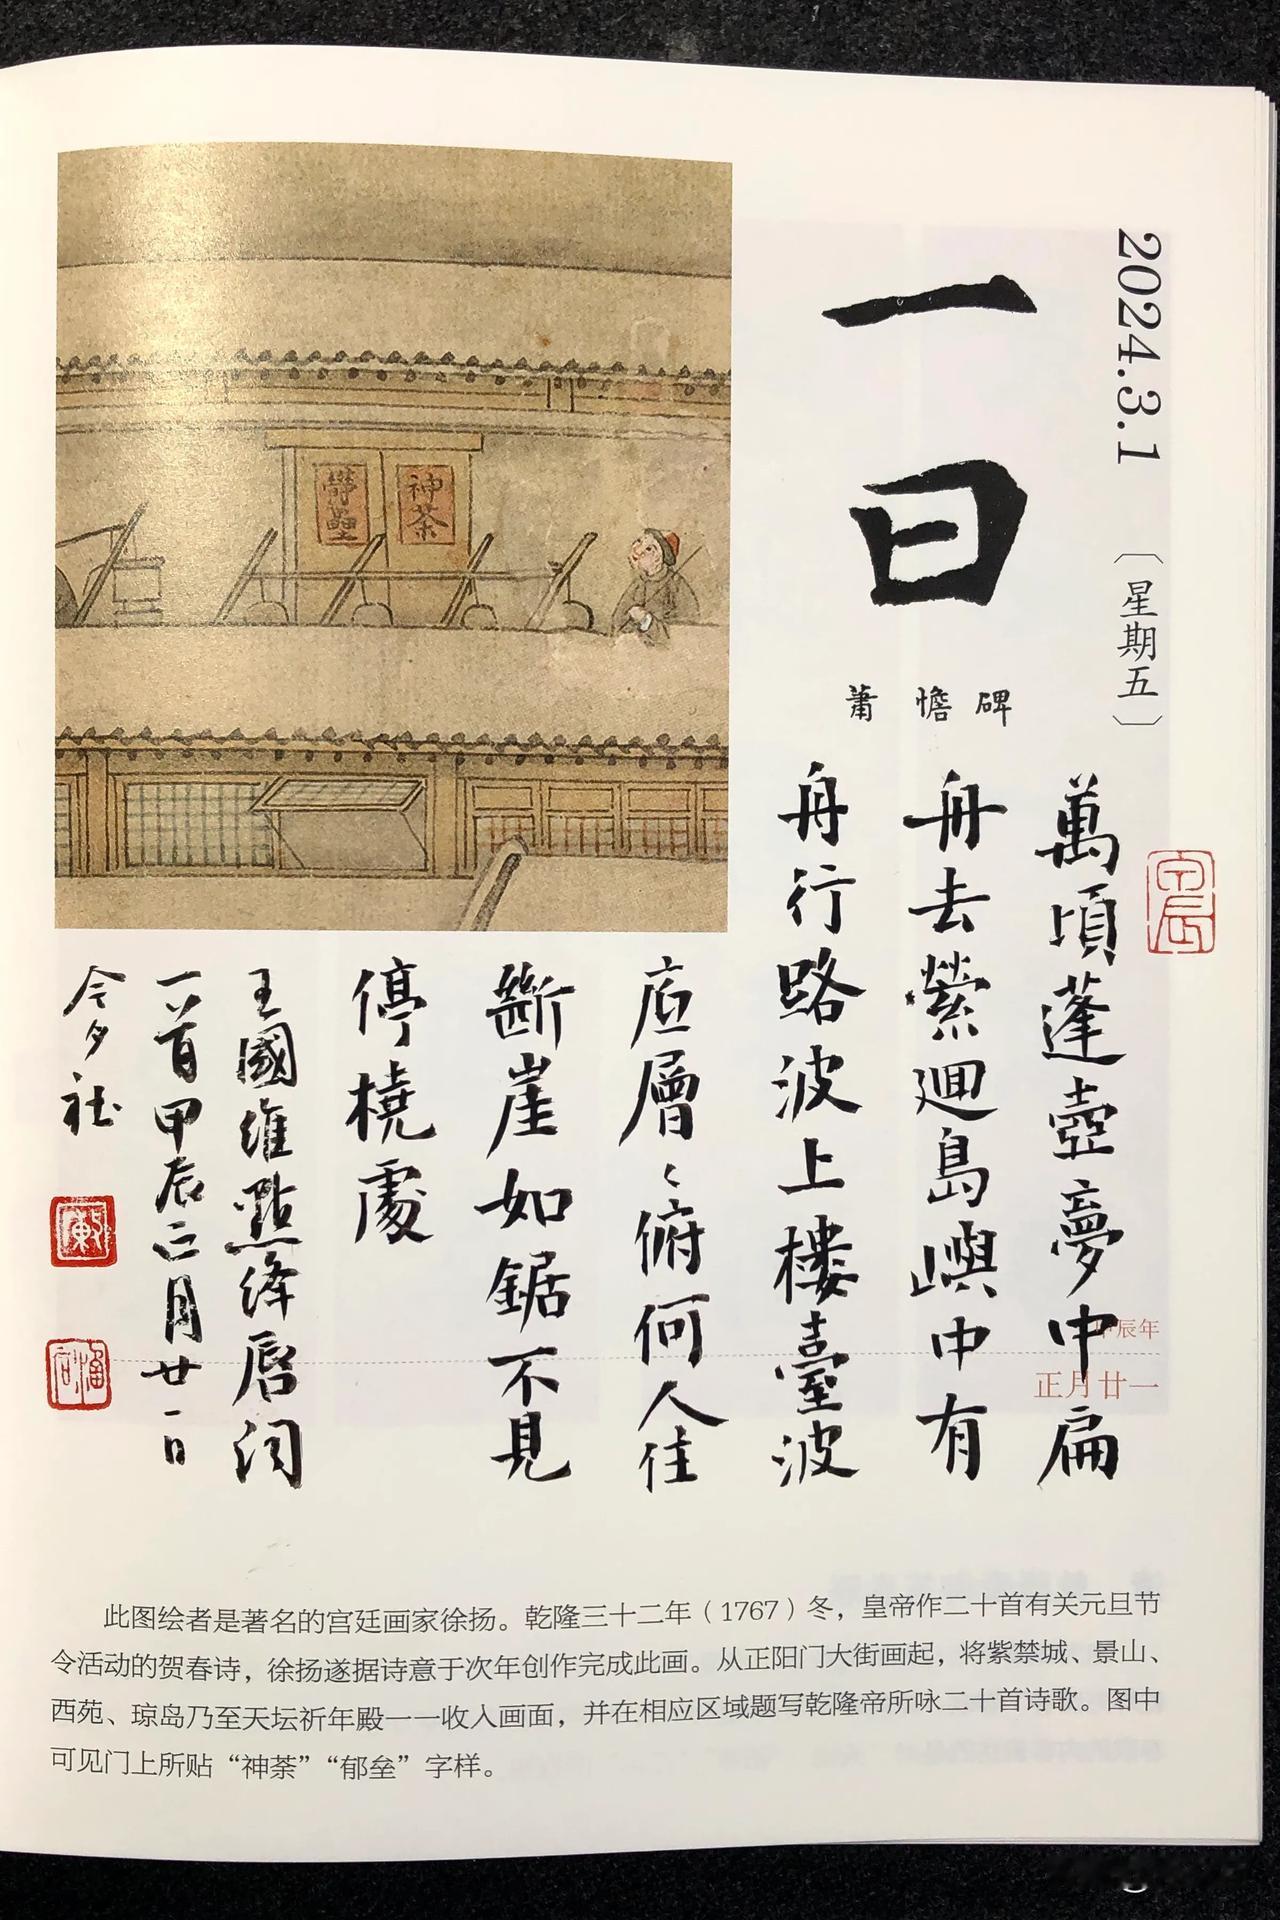 2024.3.1 〔星期五〕
一日
蕭憺碑
神荼
鬱壘
萬頃蓬壺夢中扁
舟去縈迴島嶼中有
舟行路波上樓臺波
底層〻俯何人住
斷崖如鋸不見
停橈處
王國維點絳唇詞
一首甲辰正月廿一日
今夕社
甲辰年
正月廿一
此图绘者是著名的宫廷画家徐扬。乾隆三十二年（1767）冬，皇帝作二十首有关元旦节
令活动的贺春诗，徐扬遂据诗意于次年创作完成此画。从正阳门大街画起，将紫禁城、景山、
西苑、琼岛乃至天坛祈年殿一一收入画面，并在相应区域题写乾隆帝所咏二十首诗歌。图中
可见门上所贴“神荼”“郁垒”字样。